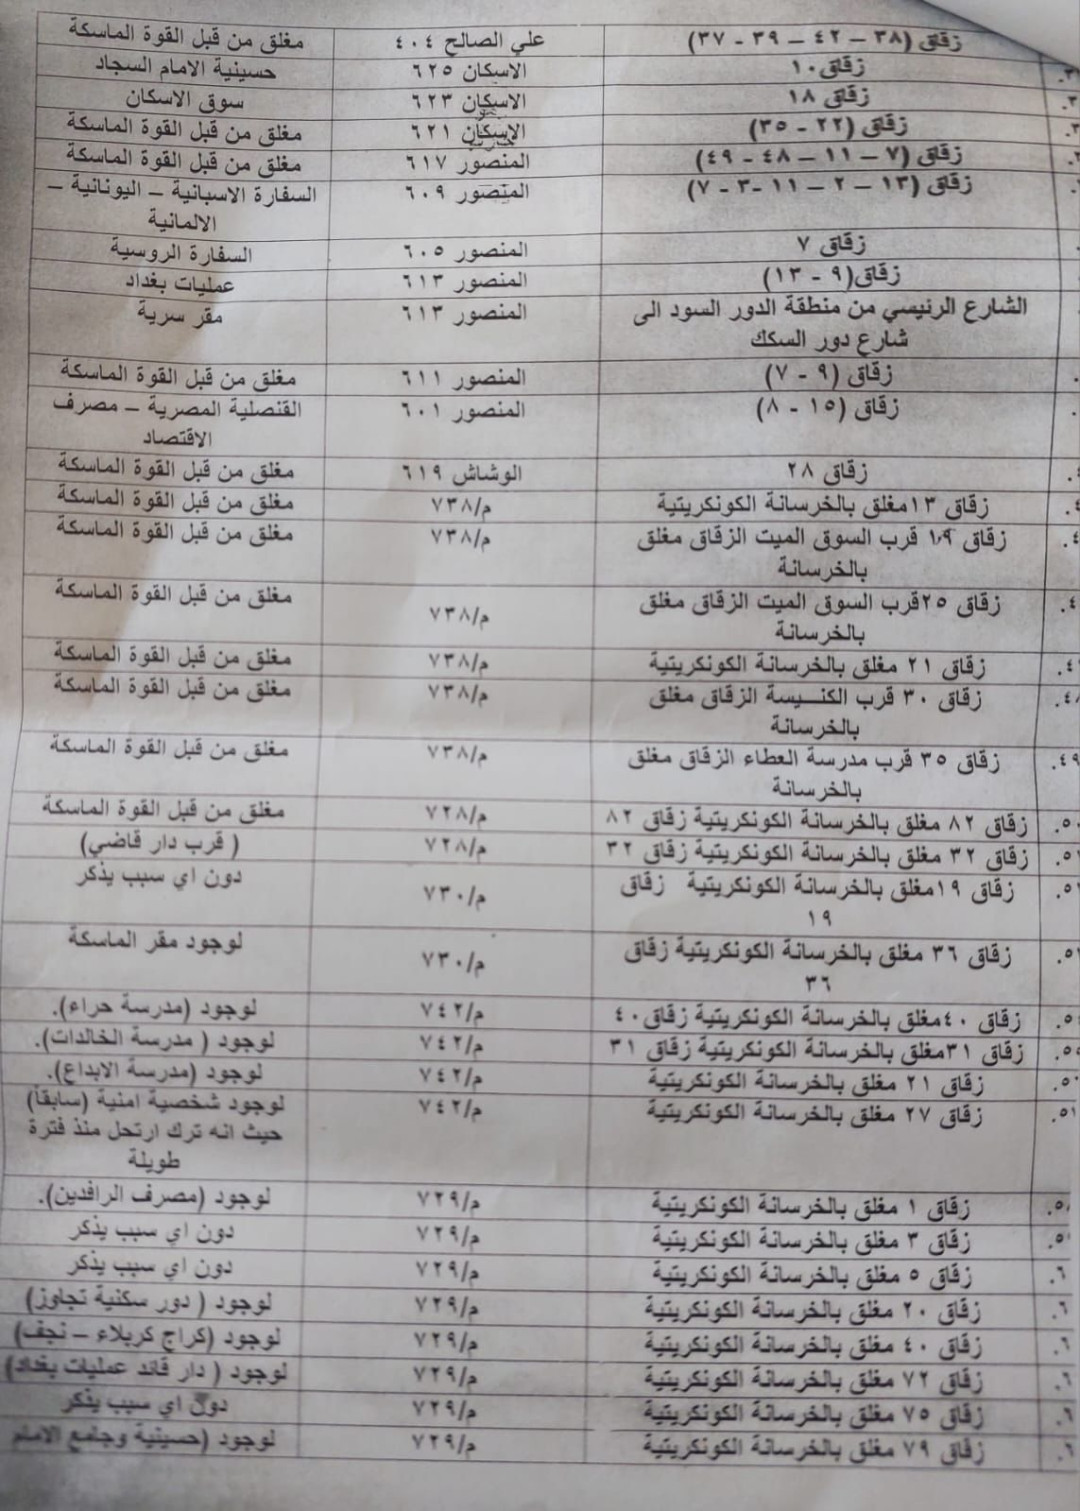 زقاق (٣٨ – ٤٢ – ٣٩ - ٣٧) علي الصالح ٤٠٤ مغلق من قبل القوة الماسكة
زقاق ١٠ الاسكان ٦٢٥ حسينية الامام السجاد
زقاق ١٨ الاسكان ٦٢٣ سوق الاسكان
زقاق (٢٢ - ٣٥) الاسكان ٦٢١ مغلق من قبل القوة الماسكة
زقاق (٧ – ١١ – ٤٨ - ٤٩) المنصور ٦١٧ مغلق من قبل القوة الماسكة
زقاق (١٣ – ٢ – ١١ -٣ - ٧) المنصور ٦٠٩ السفارة الاسبانية – اليونانية –
الالمانية
زقاق ٧ المنصور ٦٠٥ السفارة الروسية
زقاق(٩ - ١٣) المنصور ٦١٣ عمليات بغداد
الشارع الرئيسي من منطقة الدور السود الى المنصور ٦١٣ مقر سرية
شارع دور السكك
زقاق (٩ - ٧) المنصور ٦١١ مغلق من قبل القوة الماسكة
زقاق (١٥ - ٨) المنصور ٦٠١ القنصلية المصرية – مصرف
الاقتصاد
زقاق ٢٨ الوشاش ٦١٩ مغلق من قبل القوة الماسكة
زقاق ١٣مغلق بالخرسانة الكونكريتية م/٧٣٨ مغلق من قبل القوة الماسكة
زقاق ١٩ قرب السوق الميت الزقاق مغلق م/٧٣٨ مغلق من قبل القوة الماسكة
بالخرسانة
زقاق ٢٥قرب السوق الميت الزقاق مغلق م/٧٣٨ مغلق من قبل القوة الماسكة
بالخرسانة
زقاق ٢١ مغلق بالخرسانة الكونكريتية م/٧٣٨ مغلق من قبل القوة الماسكة
زقاق ٣٠ قرب الكنـــيسة الزقاق مغلق م/٧٣٨ مغلق من قبل القوة الماسكة
بالخرسانة
٤٩. زقاق ٣٥ قرب مدرسة العطاء الزقاق مغلق م/٧٣٨ مغلق من قبل القوة الماسكة
بالخرسانة
٥٠. زقاق ٨٢ مغلق بالخرسانة الكونكريتية زقاق ٨٢ م/٧٢٨ مغلق من قبل القوة الماسكة
زقاق ٣٢ مغلق بالخرسانة الكونكريتية زقاق ٣٢ م/٧٢٨ ( قرب دار قاضي)
زقاق ١٩مغلق بالخرسانة الكونكريتية زقاق م/٧٣٠ دون اي سبب يذكر
١٩
زقاق ٣٦ مغلق بالخرسانة الكونكريتية زقاق م/٧٣٠ لوجود مقر الماسكة
٣٦
زقاق ٤٠مغلق بالخرسانة الكونكريتية زقاق٤٠ م/٧٤٢ لوجود (مدرسة حراء).
زقاق ٣١مغلق بالخرسانة الكونكريتية زقاق ٣١ م/٧٤٢ لوجود ( مدرسة الخالدات).
زقاق ٢١ مغلق بالخرسانة الكونكريتية م/٧٤٢ لوجود (مدرسة الابداع).
زقاق ٢٧ مغلق بالخرسانة الكونكريتية م/٧٤٢ لوجود شخصية امنية (سابقاً)
حيث انه ترك ارتحل منذ فترة
طويلة
زقاق ١ مغلق بالخرسانة الكونكريتية م/٧٢٩ لوجود (مصرف الرافدين).
زقاق ٣ مغلق بالخرسانة الكونكريتية م/٧٢٩ دون اي سبب يذكر
زقاق ٥ مغلق بالخرسانة الكونكريتية م/٧٢٩ دون اي سبب يذكر
زقاق ٢٠ مغلق بالخرسانة الكونكريتية م/٧٢٩ لوجود ( دور سكنية تجاوز)
زقاق ٤٠ مغلق بالخرسانة الكونكريتية م/٧٢٩ لوجود (كراج كربلاء – نجف)
زقاق ٧٢ مغلق بالخرسانة الكونكريتية م/٧٢٩ لوجود ( دار قائد عمليات بغداد)
زقاق ٧٥ مغلق بالخرسانة الكونكريتية م/٧٢٩ دون اي سبب يذكر
زقاق ٧٩ مغلق بالخرسانة الكونكريتية م/٧٢٩ لوجود (حسينية وجامع الامام